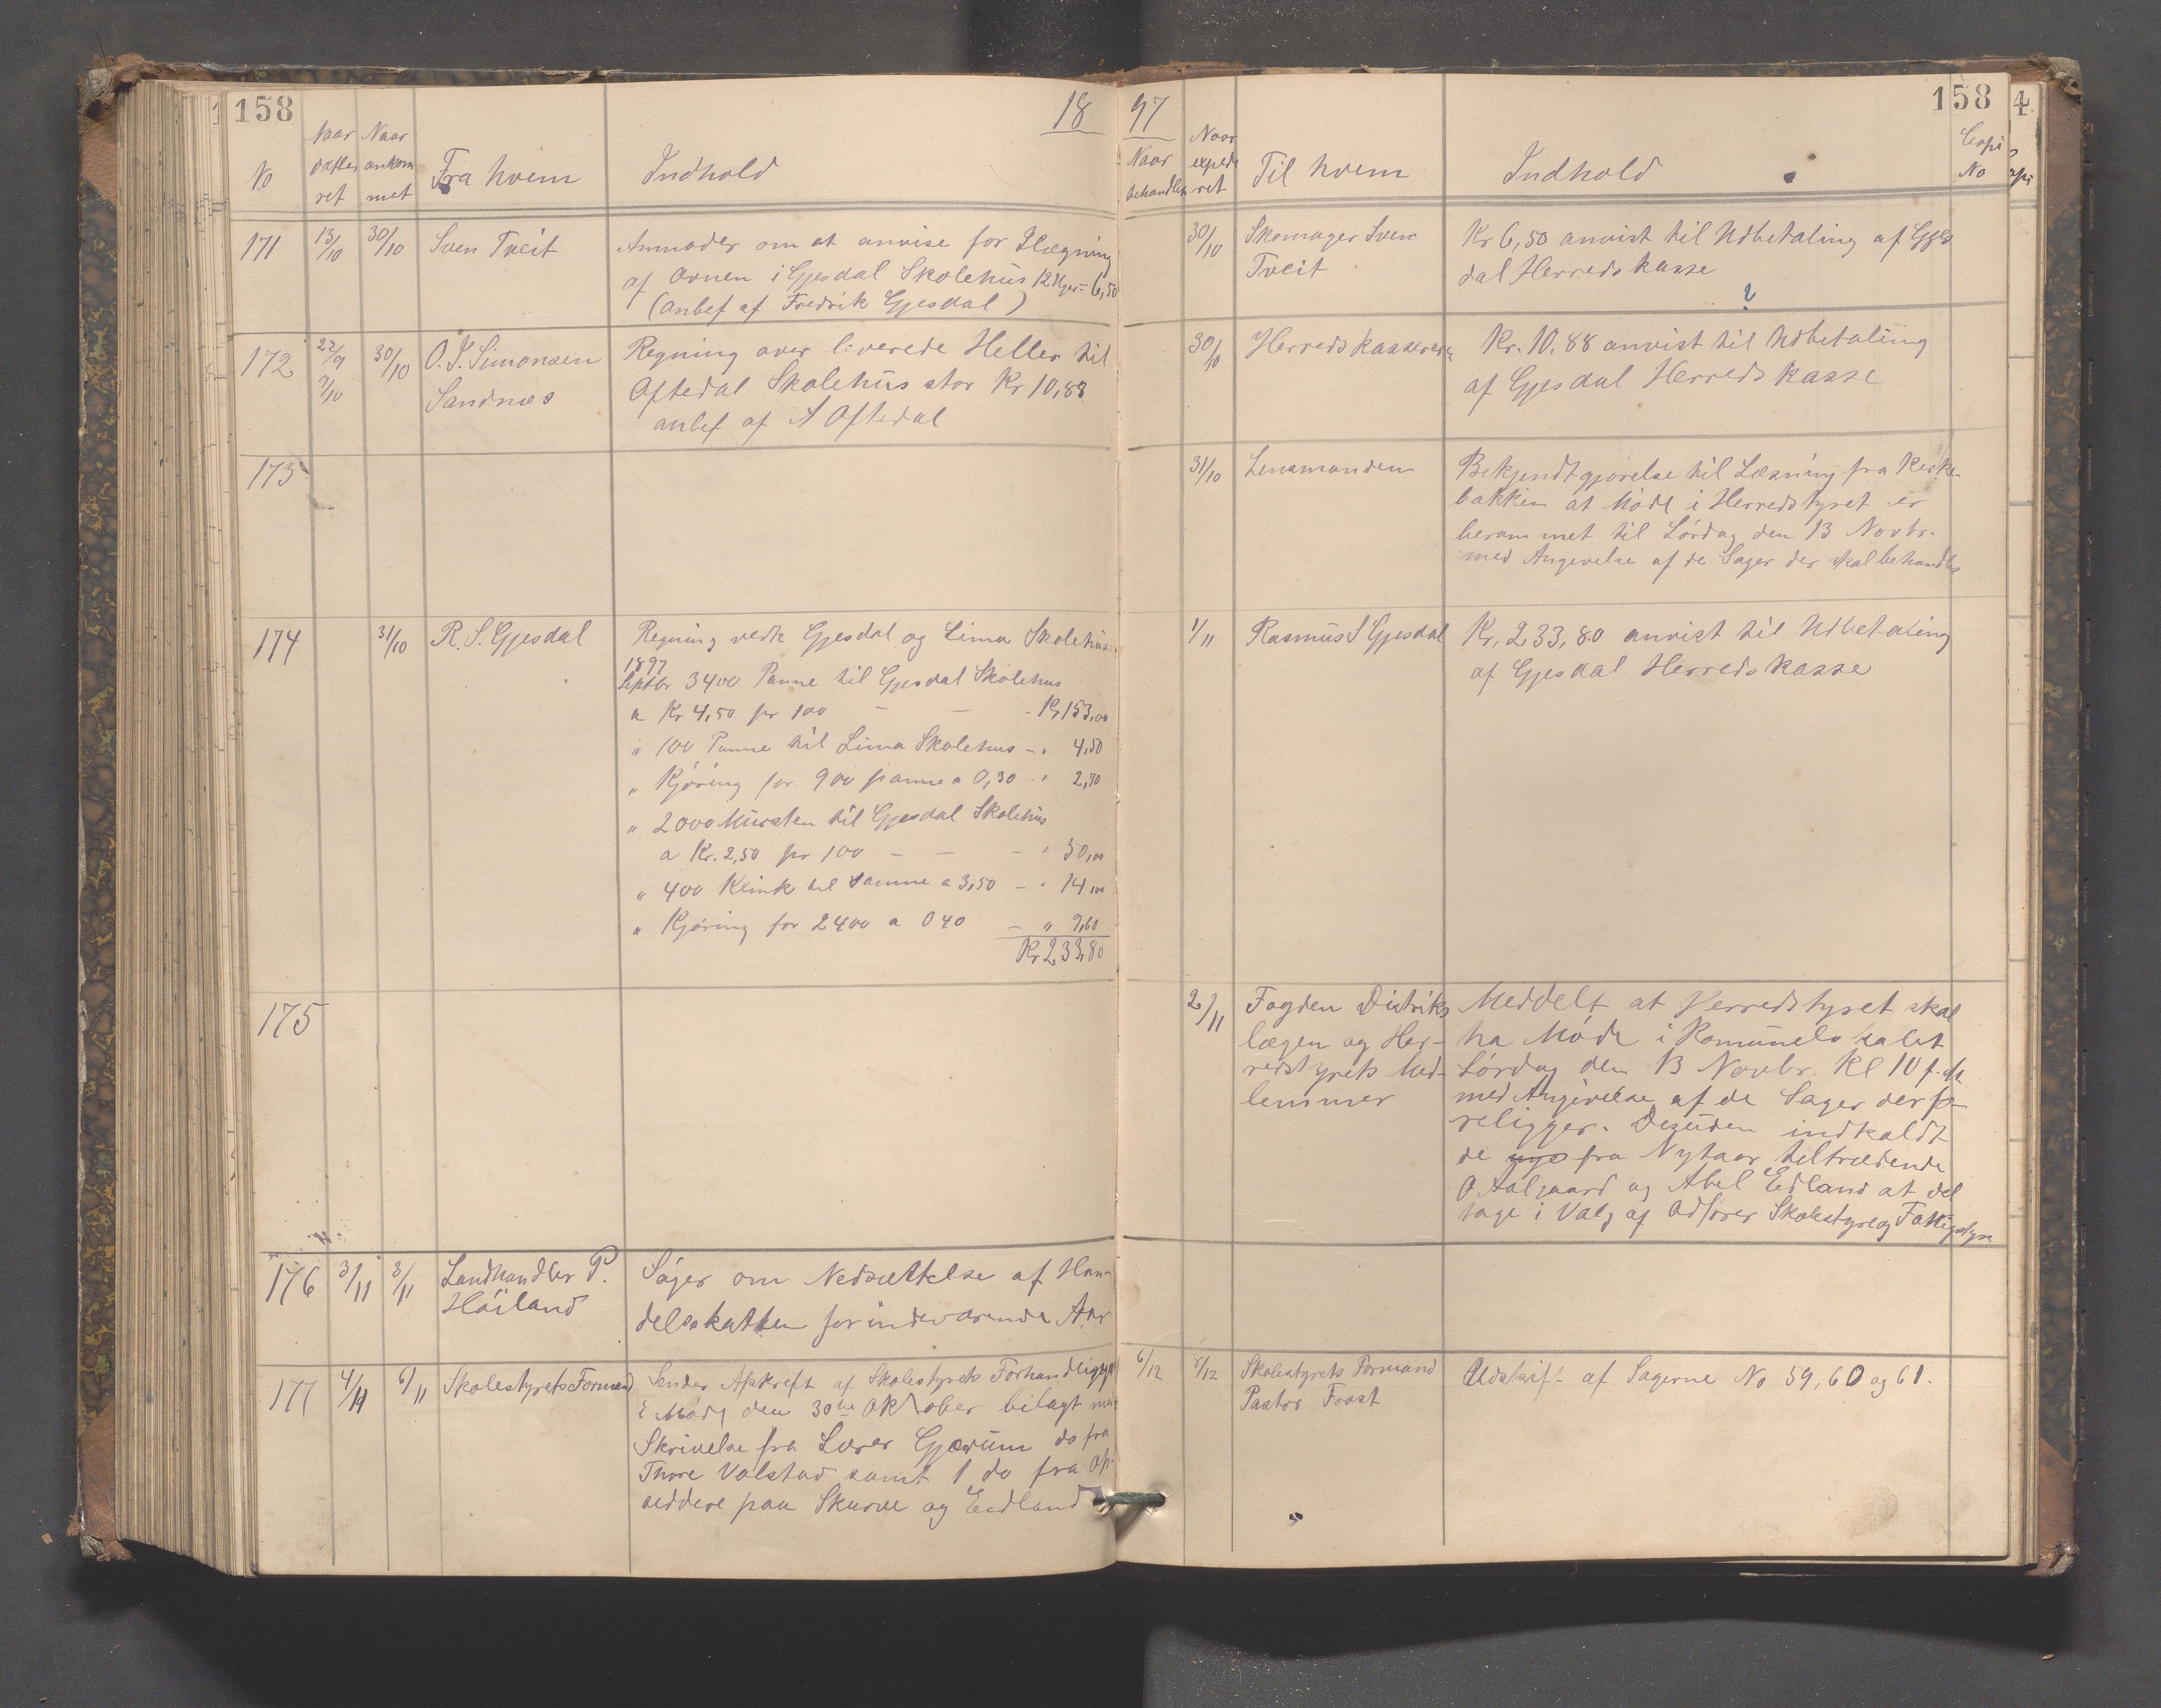 158
18
No
Naar datteret
Naar ankommet
Fra hvem
Indhold
171
13/10
30/10
Sven Tveit
Anmoder om at anvise for Ilægning
af Ovnen i Gjesdal Skolehus 12 Uger = 6,50
(anbef af Fredrik Gjesdal)
172
22/9
7/10
30/10
O. J. Simonsen
Sandnæs
Regning over leverede Heller til
Oftedal Skolehus stor Kr 10,88
anbef af A Oftedal
173
174
31/10
R. S. Gjesdal
Regning vedk Gjesdal og Lima Skolehuse
1897
Septbr 3400 Panne til Gjesdal Skolehus
a Kr 4,50 pr 100 — — - Kr 153,00
" 100 Panne til Lima Skolehus - " 4,50
" Kjöring for 900 panne a 0,30 - " 2,70
" 2000 Mursten til Gjesdal Skolehus
a Kr. 2,50 pr 100 — — - " 50,00
" 400 Klink til samme a 3,50 - " 14,00
" Kjøring for 2400 a 0 40 - " 9,60
Kr 233,80
175
176
3/11
3/11
Landhandler P.
Höiland
Søger om Nedsættelse af Han-
delsskatten for indeværende Aar
177
4/11
6/11
Skolestyrets Formand
Sender Afskreft af Skolestyrets
i Møde den 30te Oktober bilagt med
Skrivelse fra Lærer Gjærum do fra
Thore Valstad samt 1 do fra Op-
siddere paa Skurve og Eidland
97
158
Naar behandlet
Naar expederet
Til hvem
Indhold
Copi No
30/10
Skomager Sven
Tveit
Kr 6,50 anvist til Udbetaling af Gjes
dal Herreds kasse
30/10
Herredskassereren
Kr. 10.88 anvist til Udbetaling
af Gjesdal Herreds kasse
31/10
Lensmanden
Bekjendtgjørelse til Læsning fra Kirke-
bakken at Møde i Herredstyret er
berammet til Lørdag den 13 Novbr.
med Angivelse af de Sager der skal behandles
1/11
Rasmus S Gjesdal
Kr. 233,80 anvist til Udbetaling
af Gjesdal Herreds kasse
2/11
Fogden Distrikts
lægen og Her-
redstyrets Med-
lemmer
Meddelt at Herredstyret skal
ha Møde i Komunelokalet
Lørdag den 13 Novbr. Kl 10 f.
med Angivelse af de Sager der fo-
religger. Desuden indkaldt
de nye fra Nytaar tiltrædende
O Aalgaard og Abel Edland at del
tage i Valg af Ordfører Skolestyre og Fattigstyre
6/12
8/12
Skolestyrets Formand
Pastor Frost
Udskrift af Sagerne No 59, 60 og 61.